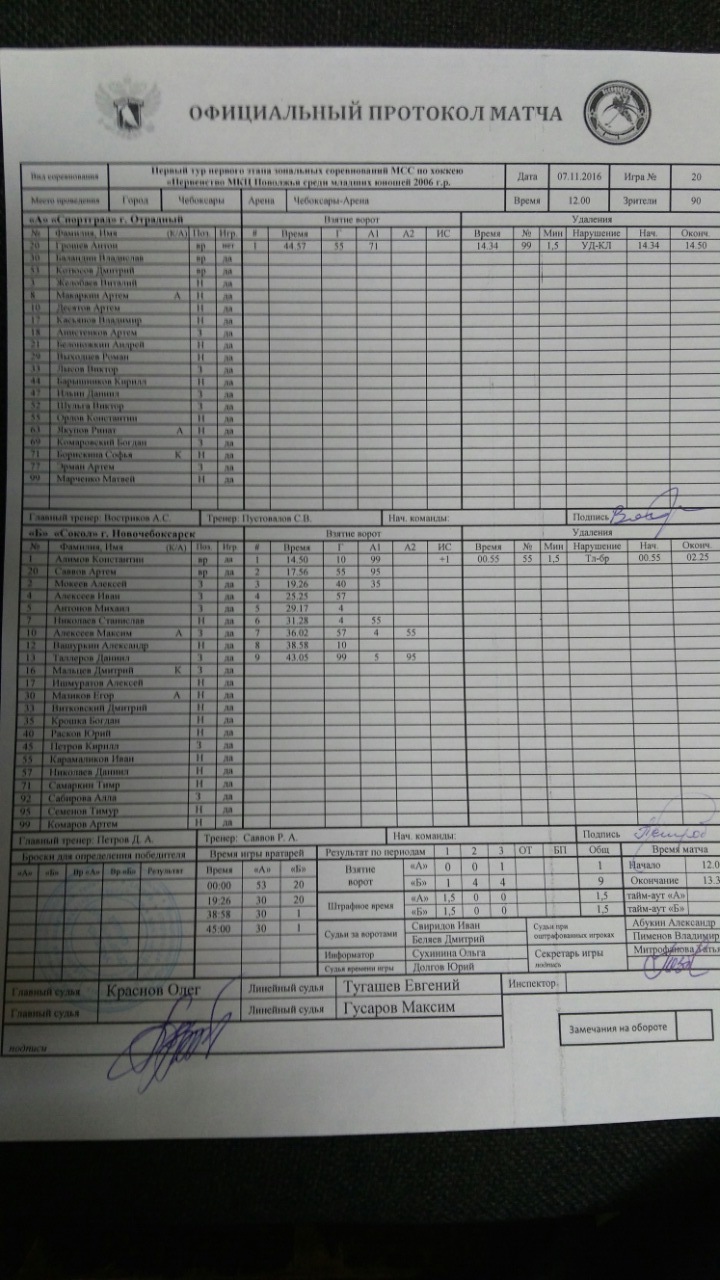 ОФИЦИАЛЬНЫЙ ПРОТОКОЛ МАТЧА
Вид соревнования Первый тур первого этапа зональных соревнований МСС по хоккею «Первенство МКЦ Поволжья среди младших юношей 2006 г.р. Дата 07.11.2016 Игра № 20
Место проведения Город Чебоксары Арена Чебоксары-Арена Время 12.00 Зрители 90
«А» «Спортград» г. Отрадный Взятие ворот Удаления
№ Фамилия, Имя (К/А) Поз. Игр. # Время Г А1 А2 ИС Время № Мин Нарушение Нач. Оконч.
20 Грошев Антон вр нет 1 44.57 55 71 14.34 99 1,5 УД-КЛ 14.34 14.50
30 Баландин Владислав вр да
53 Котюсов Дмитрий вр да
3 Желобаев Виталий Н да
8 Макаркин Артем А Н да
10 Десятов Артем Н да
17 Касьянов Владимир Н да
18 Анистенков Артем З да
21 Белоножкин Андрей Н да
29 Выходцев Роман Н да
33 Лысов Виктор З да
44 Барышников Кирилл Н да
47 Ильин Даниил З да
52 Шульга Виктор З да
55 Орлов Константин Н да
63 Якупов Ринат А Н да
69 Комаровский Богдан З да
71 Борискина Софья К Н да
77 Эрман Артем З да
99 Марченко Матвей Н да
Главный тренер: Востриков А.С. Тренер: Пустовалов С.В. Нач. команды: Подпись
«Б» «Сокол» г. Новочебоксарск Взятие ворот Удаления
№ Фамилия, Имя (К/А) Поз. Игр # Время Г А1 А2 ИС Время № Мин Нарушение Нач. Оконч.
1 Алимов Константин вр да 1 14.50 10 99 +1 00.55 55 1,5 Тл-бр 00.55 02.25
20 Саввов Артем вр да 2 17.56 55 95
2 Мокеев Алексей З да 3 19.26 40 35
4 Алексеев Иван З да 4 25.25 57
5 Антонов Михаил З да 5 29.17 4
7 Николаев Станислав Н да 6 31.28 4 55
10 Алексеев Максим А З да 7 36.02 57 4 55
12 Вашуркин Александр Н да 8 38.58 10
13 Таллеров Даниил З да 9 43.05 99 5 95
16 Мальцев Дмитрий К З да
17 Ишмуратов Алексей Н да
30 Мазиков Егор А Н да
33 Витковский Дмитрий Н да
35 Крошка Богдан Н да
40 Расков Юрий Н да
45 Петров Кирилл З да
55 Карамаликов Иван Н да
57 Николаев Даниил Н да
71 Самаркин Тимр Н да
92 Сабирова Алла З да
95 Семенов Тимур Н да
99 Комаров Артем Н да
Главный тренер: Петров Д. А. Тренер: Саввов Р. А. Нач. команды: Подпись
Броски для определения победителя Время игры вратарей Результат по периодам 1 2 3 ОТ БП Общ Время матча
«А» «Б» Вр «А» Вр «Б» Результат Время «А» «Б» Взятие ворот «А» 0 0 1 1 Начало 12.0
00:00 53 20 «Б» 1 4 4 9 Окончание 13.3
19:26 30 20 Штрафное время «А» 1,5 0 0 1,5 тайм-аут «А»
38:58 30 1 «Б» 1,5 0 0 1,5 тайм-аут «Б»
45:00 30 1 Судьи за воротами Свиридов Иван Судьи при оштрафованных игроках Абукин Александр
Беляев Дмитрий Пименов Владимир
Информатор Сухинина Ольга Секретарь игры подпись Митрофанова
Судья времени игры Долгов Юрий
Главный судья Краснов Олег Линейный судья Тугашев Евгений Инспектор
Главный судья Линейный судья Гусаров Максим
подписи
Замечания на обороте